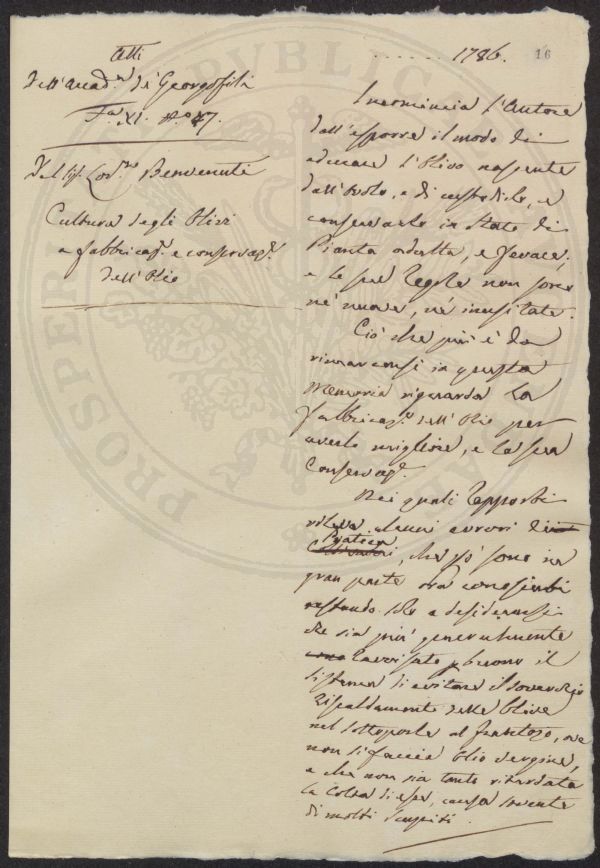 Atti
dell'Accad.ª de' Georgofili
Fa XI. N.º 47.
Del Sig.r Cod.mo Benvenuti
Cultura degli Olivi
e fabbricaz.e e conservaz.e
dell'Olio
1786. 16
Incomincia l'Autore
dall'esporre il modo di
educare l'Olivo nascente
dall'Ovolo, e di custodirlo, e
conservarlo in Stato di
Pianta adulta, e ferace;
e le sue Regole non sono
nè nuove, nè inusitate.
Ciò che più è da
rimarcarsi in questa
Memoria riguarda la
fabbricaz.e dell'Olio per
averlo migliore, e la sua
Conservaz.e
Nei quali rapporti
rileva alcuni errori di
Pratica, che però sono in
gran parte ora conosciuti
restando solo a desiderarsi
che sia più generalmente
ravvisato p buono il
sistema di evitare il soverchio
riscaldamento delle Olive
nel sottoporle al frantojo, ove
non si faccia Olio vergine,
e che non sia tanto ritardata
la Colta di esse, causa sovente
di molti scapiti.
PROSPERITÀ REPUBBLICA